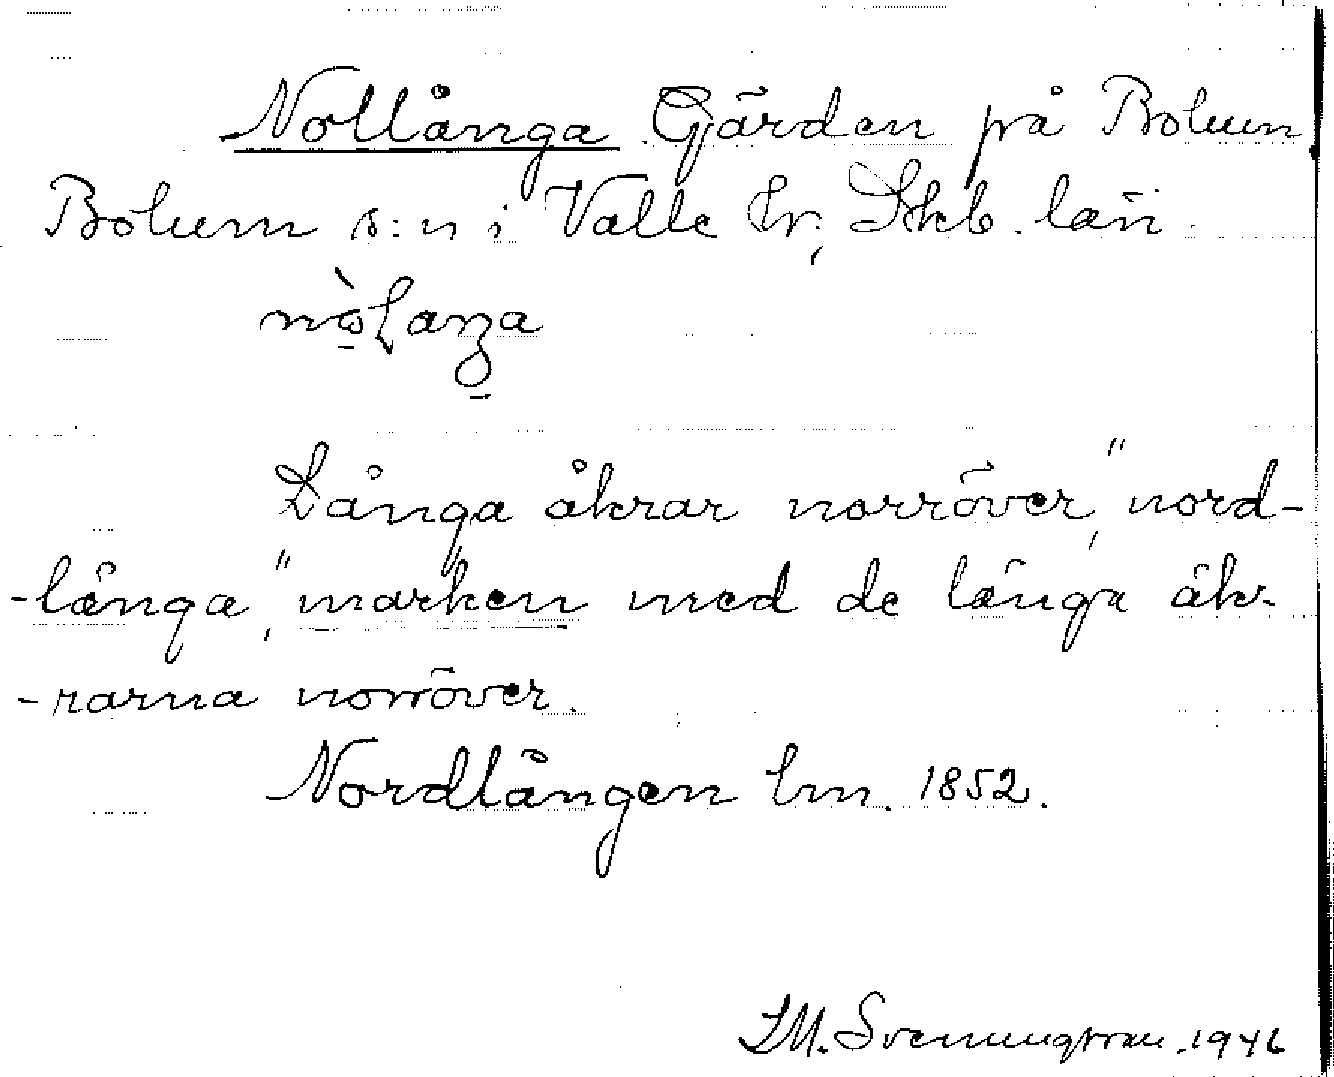 Nollånga Gärden på Bolum
Bolum s:n i Valle hr; Skb. län
Långa åkrar norröver, "nord-
-långa", "marken med de långa åk-
-rarna norröver.
Nordlången lm. 1852.
1946